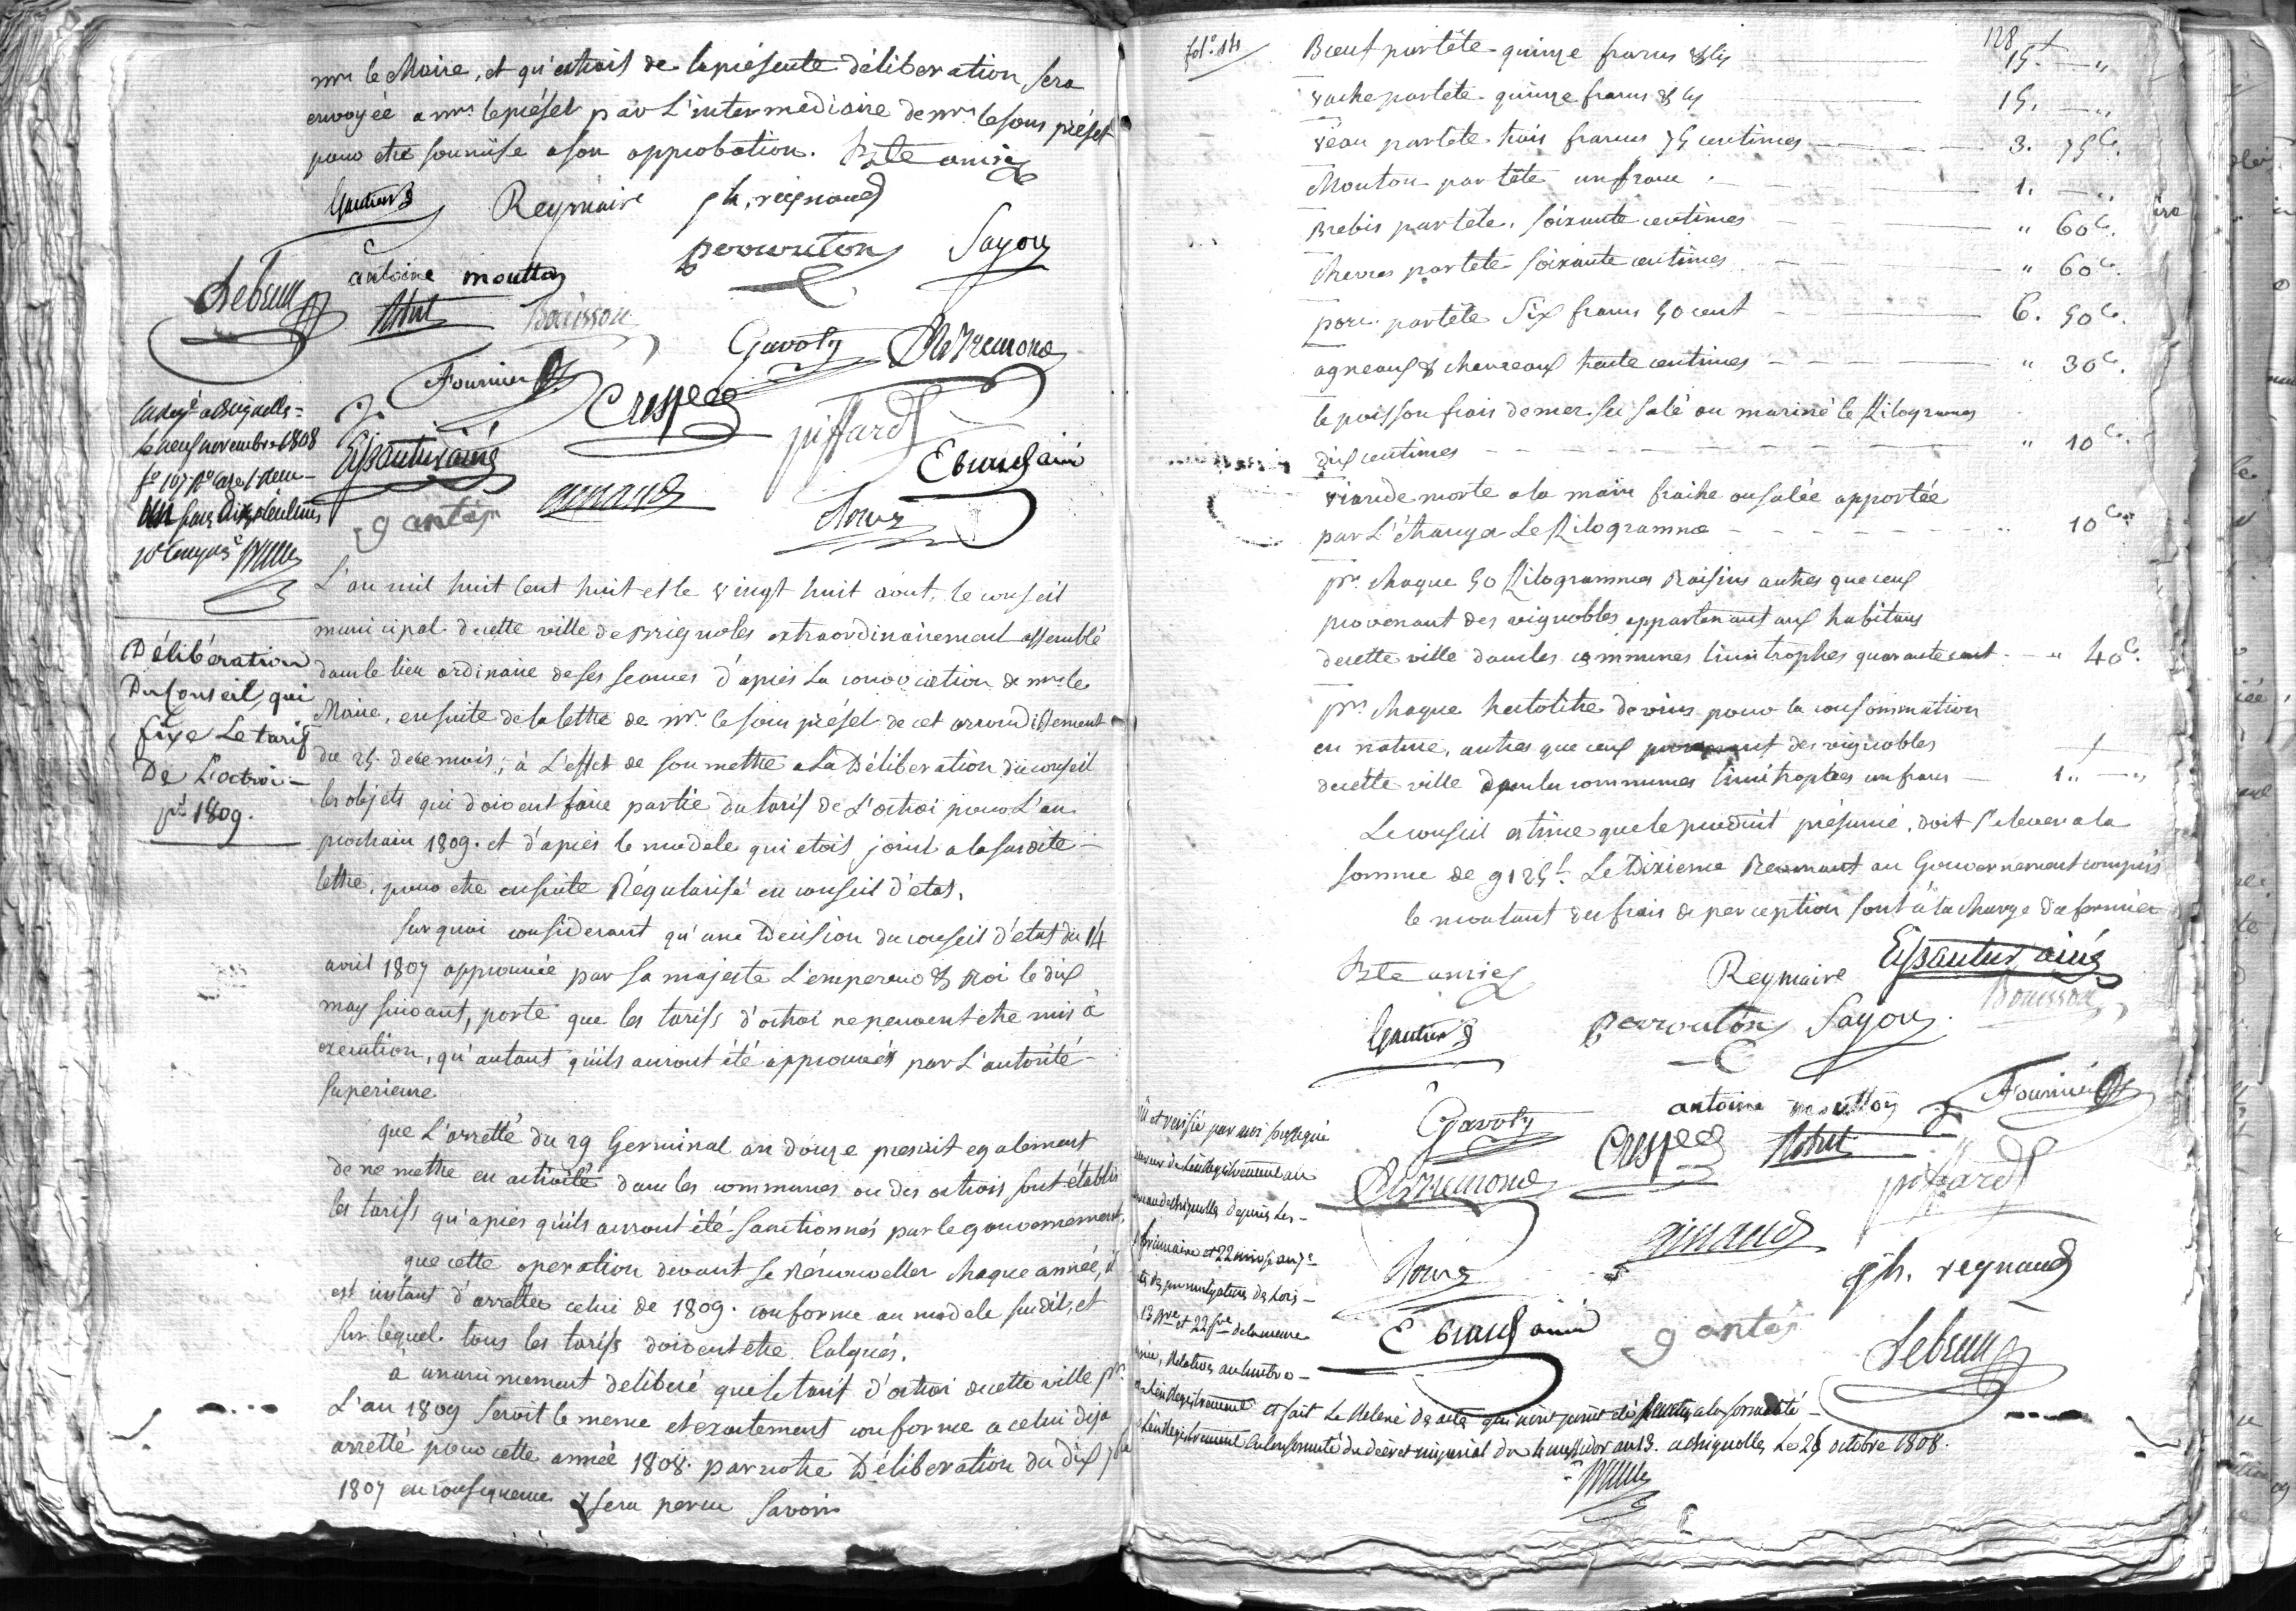 mr. le Maire, et qu'extrait de la présente délibération sera
envoyée a mr. le préfet par L'intermediaire de mr. le sous préfet
pour etre soumise a son approbation. Bte amic
Gautier Reymaire ph. reignaud
Lebrun antoine moutton perrouton Sayou
Bouisson
Gavoty
Fournier Crespe
piffard
Essautier ainé
Ebrard ainé
g antes
a Brignolles
le neuf novembre 1808
fo. 107
L'an mil huit cent huit et le vingt huit août, le conseil
municipal de cette ville de Brignoles extraordinairement assemblé
dans le lieu ordinaire de ses seances d'après la convocation de mr. le
Maire, ensuite de la lettre de mr. le sous préfet de cet arrondissement
du 25. de ce mois, à L'effet de soumettre a La Déliberation du conseil
les objets qui doivent faire partie du tarif de L'octroi pour L'an
prochain 1809. et d'après le modele qui etoit joint a la susdite
lettre, pour etre ensuite Régularisé en conseil d'etat.
Délibération
Du Conseil, qui
fixe Le tarif
De L'octroi
pr. 1809.
Sur quoi considerant qu'une Décision du conseil d'etat du 14
avril 1807 approuvée par sa majeste L'empereur & Roi le dix
may suivant, porte que les tarifs d'octroi ne peuvent etre mis à
execution, qu'autant qu'ils auront été approuvés par L'autorité
superieure
que L'arretté du 29 Germinal an douze prescrit egalement
de ne mettre en activité dans les communes ou des octrois sont établis
les tarifs qu'après qu'ils auront été sanctionnés par le gouvernement,
que cette operation devant se renouveller chaque année, il
est instant d'arretter celui de 1809. conforme au modele susdit, et
sur lequel tous les tarifs doivent etre Calqués.
à unanimement deliberé que le tarif d'octroi de cette ville pr.
L'an 1809 seroit le meme et exactement conforme a celui deja
arretté pour cette année 1808. par notre Déliberation du dix 7bre
1807 en consequence il sera percu Savoir
fol.o 14
128
Boeuf par tête quinze francs & cy 15. — "
vache par tete quinze francs & cy 15. — "
veau par tete trois francs 75 centimes 3. 75c.
Mouton par tête un franc 1. — "
Brebis par tête, soixante centimes " 60c.
chevres par tete soixante centimes " 60c.
porc par tête Six francs 50 cent 6. 50c.
agneaux & chevreaux trente centimes " 30c.
le poisson frais de mer sec salé ou mariné le Kilogrames
dix centimes " 10c.
viande morte a la main fraiche ou salée apportée
par L'étranger Le Kilogramme " 10c.
pr. chaque 50 Kilogrammes Raisins autres que ceux
provenant des vignobles appartenant aux habitans
de cette ville dans les communes limitrophes quarante cent. " 40c.
pr. chaque hectolitre de vins pour la consommation
en nature, autres que ceux provenant des vignobles
de cette ville dans les communes limitrophes un franc 1. — "
Le conseil estime que le produit présumé, doit s'elever a la
somme de 9125f. Le Dixieme Revenant au Gouvernement compris
le montant des frais de perception sont à la charge du fermier
Bte amic Reymaire Essautier ainé
Gautier perrouton Sayou Bouisson
Gavoty antoine moutton Fournier
Crespe piffard
ph. regnaud
Ebrard ainé g antes Lebrun
Vu et verifié par moi soussigné
et fait Le Relevé des actes qui n'ont point été soumis a la formalité
Brignolles Le 25 octobre 1808.